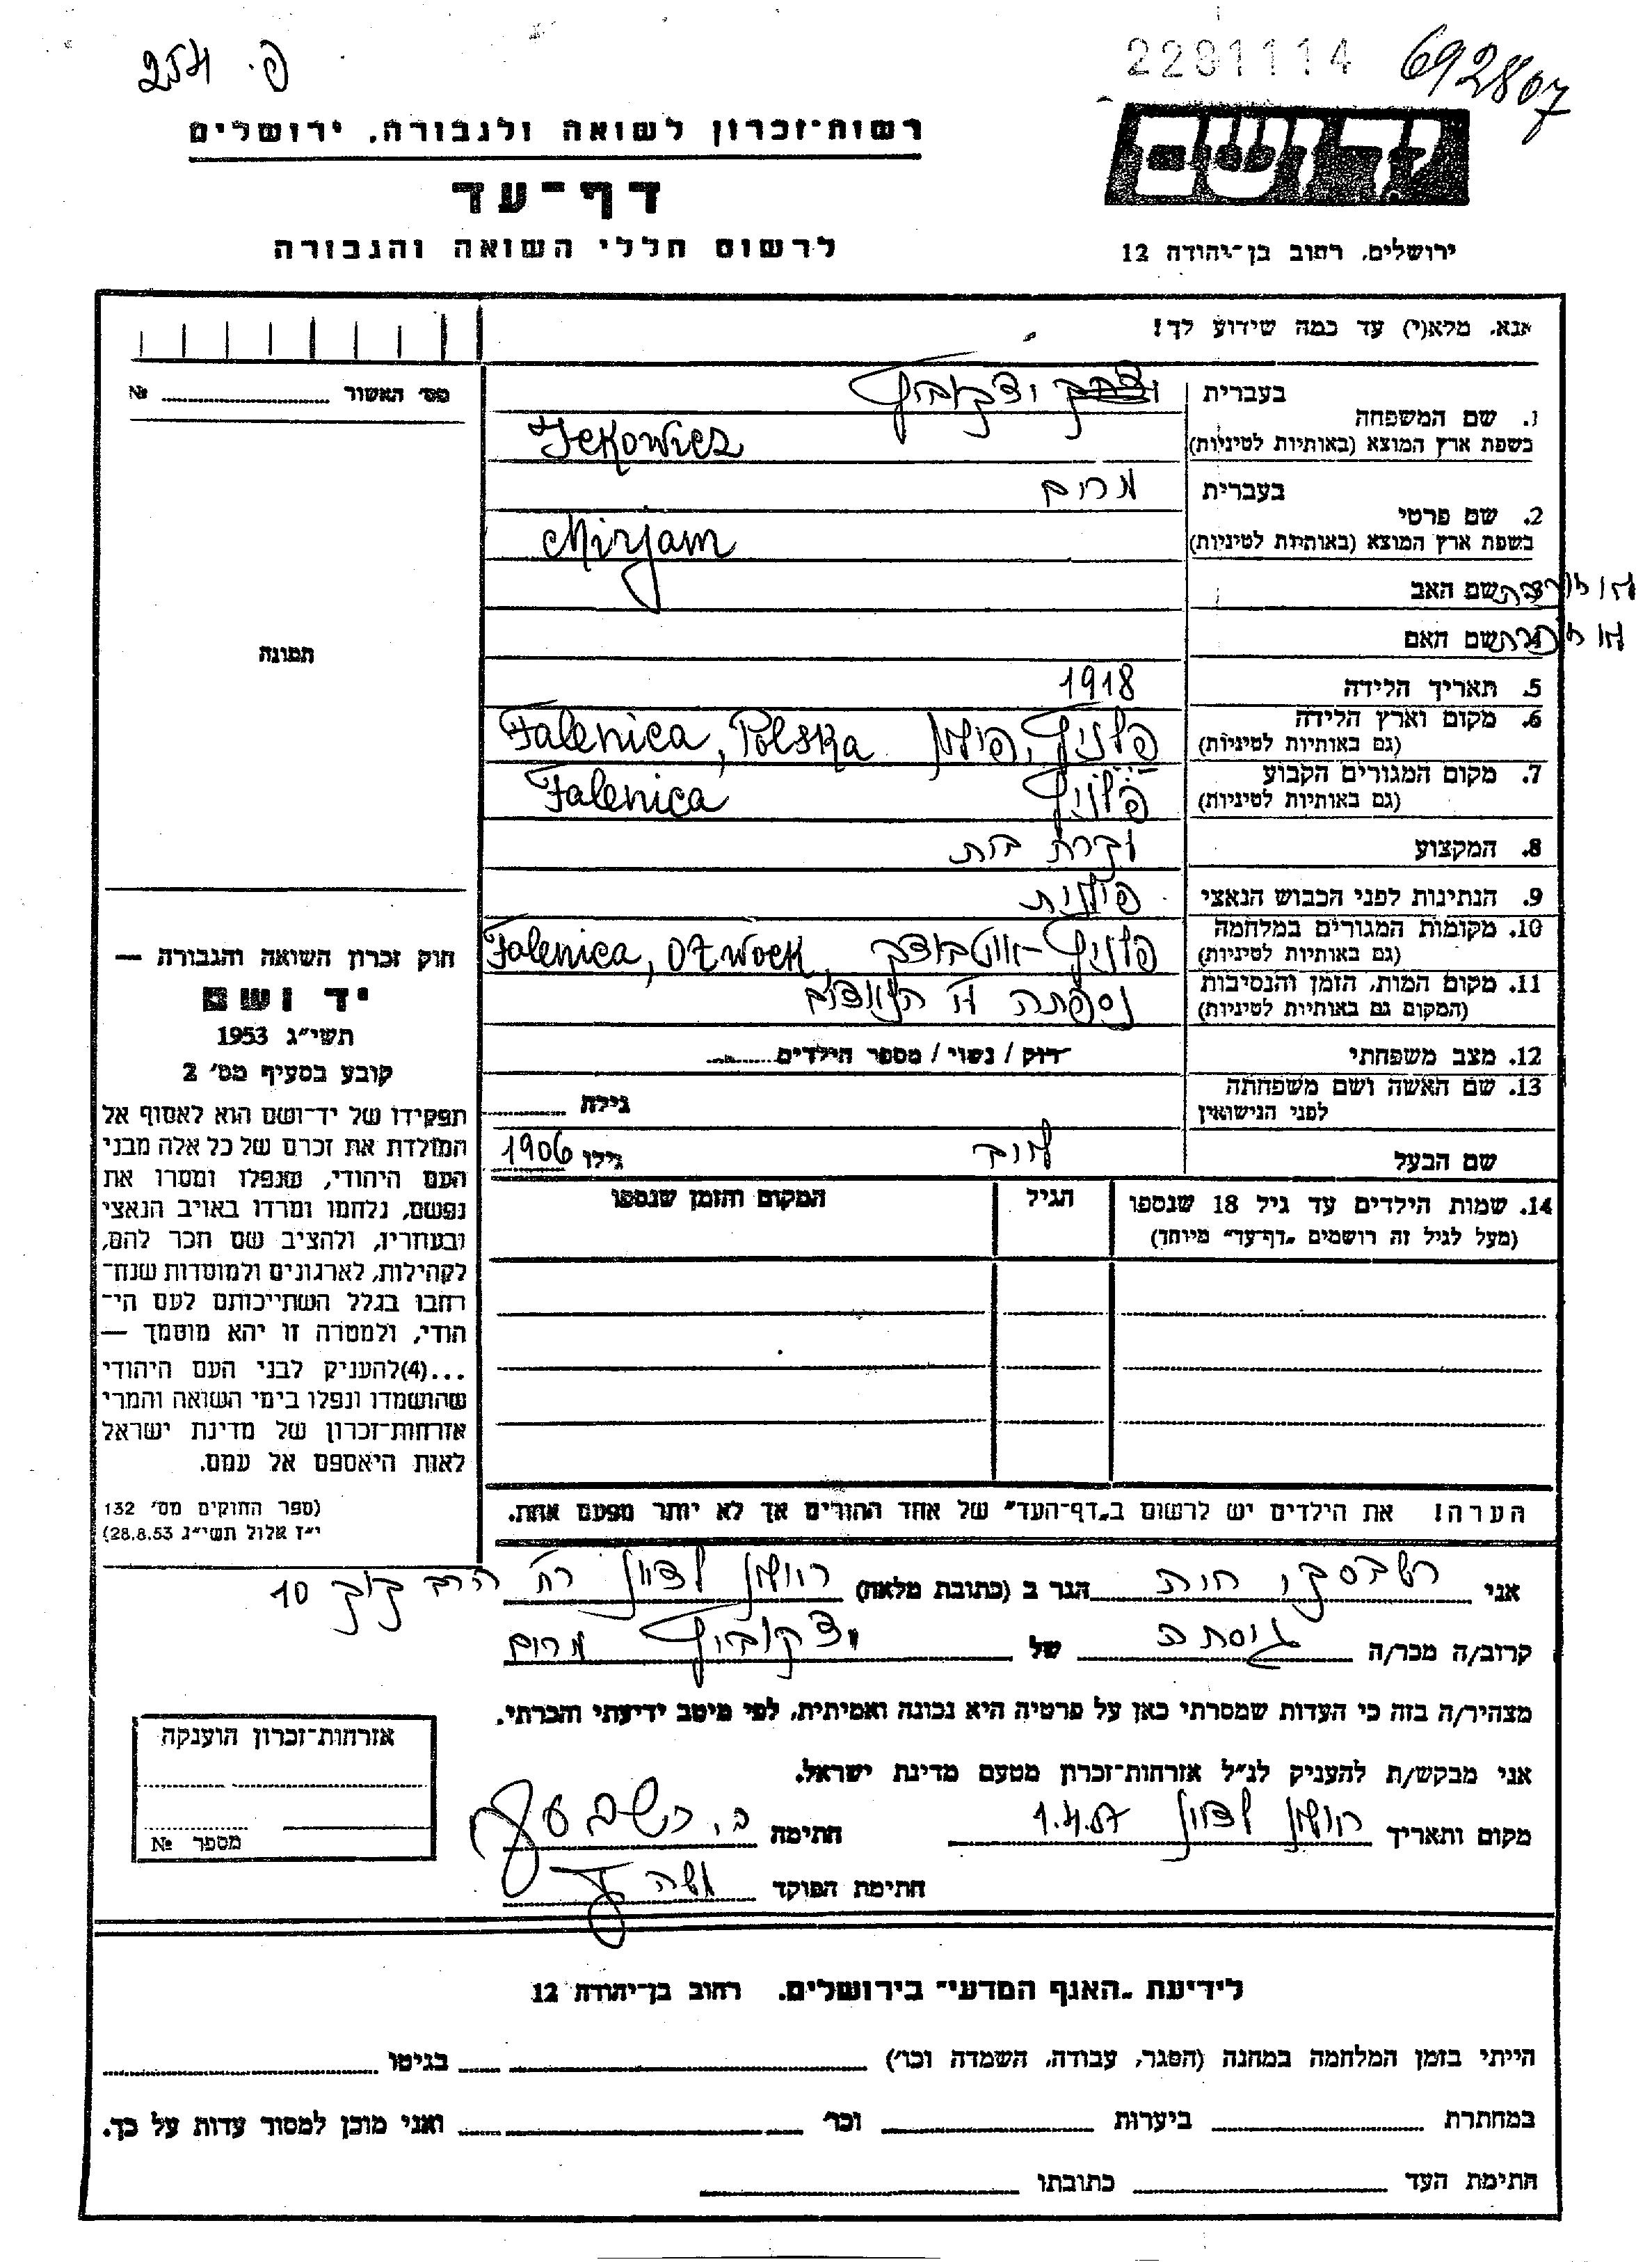 254 פ.
2291114
692807
רשות-זכרון לשואה ולגבורה, ירושלים
ידושם
דף-עד
לרשום חללי השואה והגבורה
ירושלים, רחוב בן-יהודה 12
אנא, מלא(י) עד כמה שידוע לך!
מס' האשור № 
בעברית
1. שם המשפחה
בשפת ארץ המוצא (באותיות לטיניות)
Ickowicz
בעברית מרים
2. שם פרטי
בשפת ארץ המוצא (באותיות לטיניות)
Mirjam
שם האב
שם האם
תמונה
5. תאריך הלידה 1918
6. מקום וארץ הלידה
(גם באותיות לטיניות)
פלניץ, פולין Falenica, Polska
7. מקום המגורים הקבוע
(גם באותיות לטיניות)
פלניץ Falenica
8. המקצוע עקרת בית
9. הנתינות לפני הכבוש הנאצי פולנית
10. מקומות המגורים במלחמה
(גם באותיות לטיניות)
פלניץ-אוטבוצק, Falenica, Otwock
11. מקום המות, הזמן והנסיבות
(המקום גם באותיות לטיניות)
נספתה ע"י הנאצים
12. מצב משפחתי רוק / נשוי / מספר הילדים
13. שם האשה ושם משפחתה
לפני הנישואין
גילה
שם הבעל גילו 1906
14. שמות הילדים עד גיל 18 שנספו
(מעל לגיל זה רושמים „דף-עד" מיוחד)
הגיל
המקום והזמן שנספו
הערה! את הילדים יש לרשום ב„דף-העד" של אחד ההורים אך לא יותר מפעם אחת.
חוק זכרון השואה והגבורה —
יד ושם
תשי"ג 1953
קובע בסעיף מס' 2
תפקידו של יד-ושם הוא לאסוף אל
המולדת את זכרם של כל אלה מבני
העם היהודי, שנפלו ומסרו את
נפשם, נלחמו ומרדו באויב הנאצי
ובעוזריו, ולהציב שם וזכר להם,
לקהילות, לארגונים ולמוסדות שנח-
רחבו בגלל השתייכותם לעם הי-
הודי, ולמטרה זו יהא מוסמך —
...(4)להעניק לבני העם היהודי
שהושמדו ונפלו בימי השואה והמרי
אזרחות-זכרון של מדינת ישראל
לאות היאספם אל עמם.
(ספר החוקים מס' 132
י"ז אלול תשי"ג 28.8.53)
אני חיה הגר ב (כתובת מלאה) ראשון לציון רח' הרב קוק 10
קרוב/ה מכר/ה גיסתה של יצקוביץ מרים
מצהיר/ה בזה כי העדות שמסרתי כאן על פרטיה היא נכונה ואמיתית, לפי מיטב ידיעתי והכרתי.
אני מבקש/ת להעניק לנ"ל אזרחות-זכרון מטעם מדינת ישראל.
מקום ותאריך ראשון לציון 1.4.57 חתימה
חתימת הפוקד
אזרחות-זכרון הוענקה
מספר №
לידיעת „האגף המדעי" בירושלים, רחוב בן-יהודה 12
הייתי בזמן המלחמה במחנה (הסגר, עבודה, השמדה וכו') בגיטו
במחתרת ביערות וכו' ואני מוכן למסור עדות על כך.
חתימת העד כתובתו